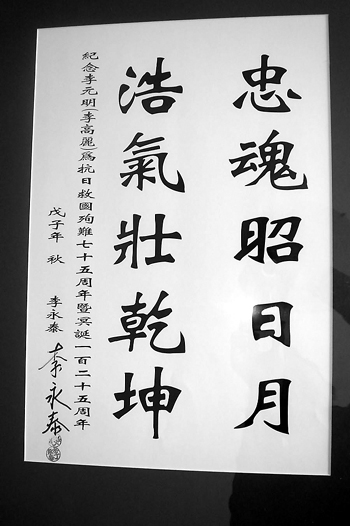 忠魂昭日月
浩氣壯乾坤
紀念李元明(李高麗)為抗日救國殉難七十五周年暨冥誕一百二十五周年
戊子年 秋 李永泰
李永泰